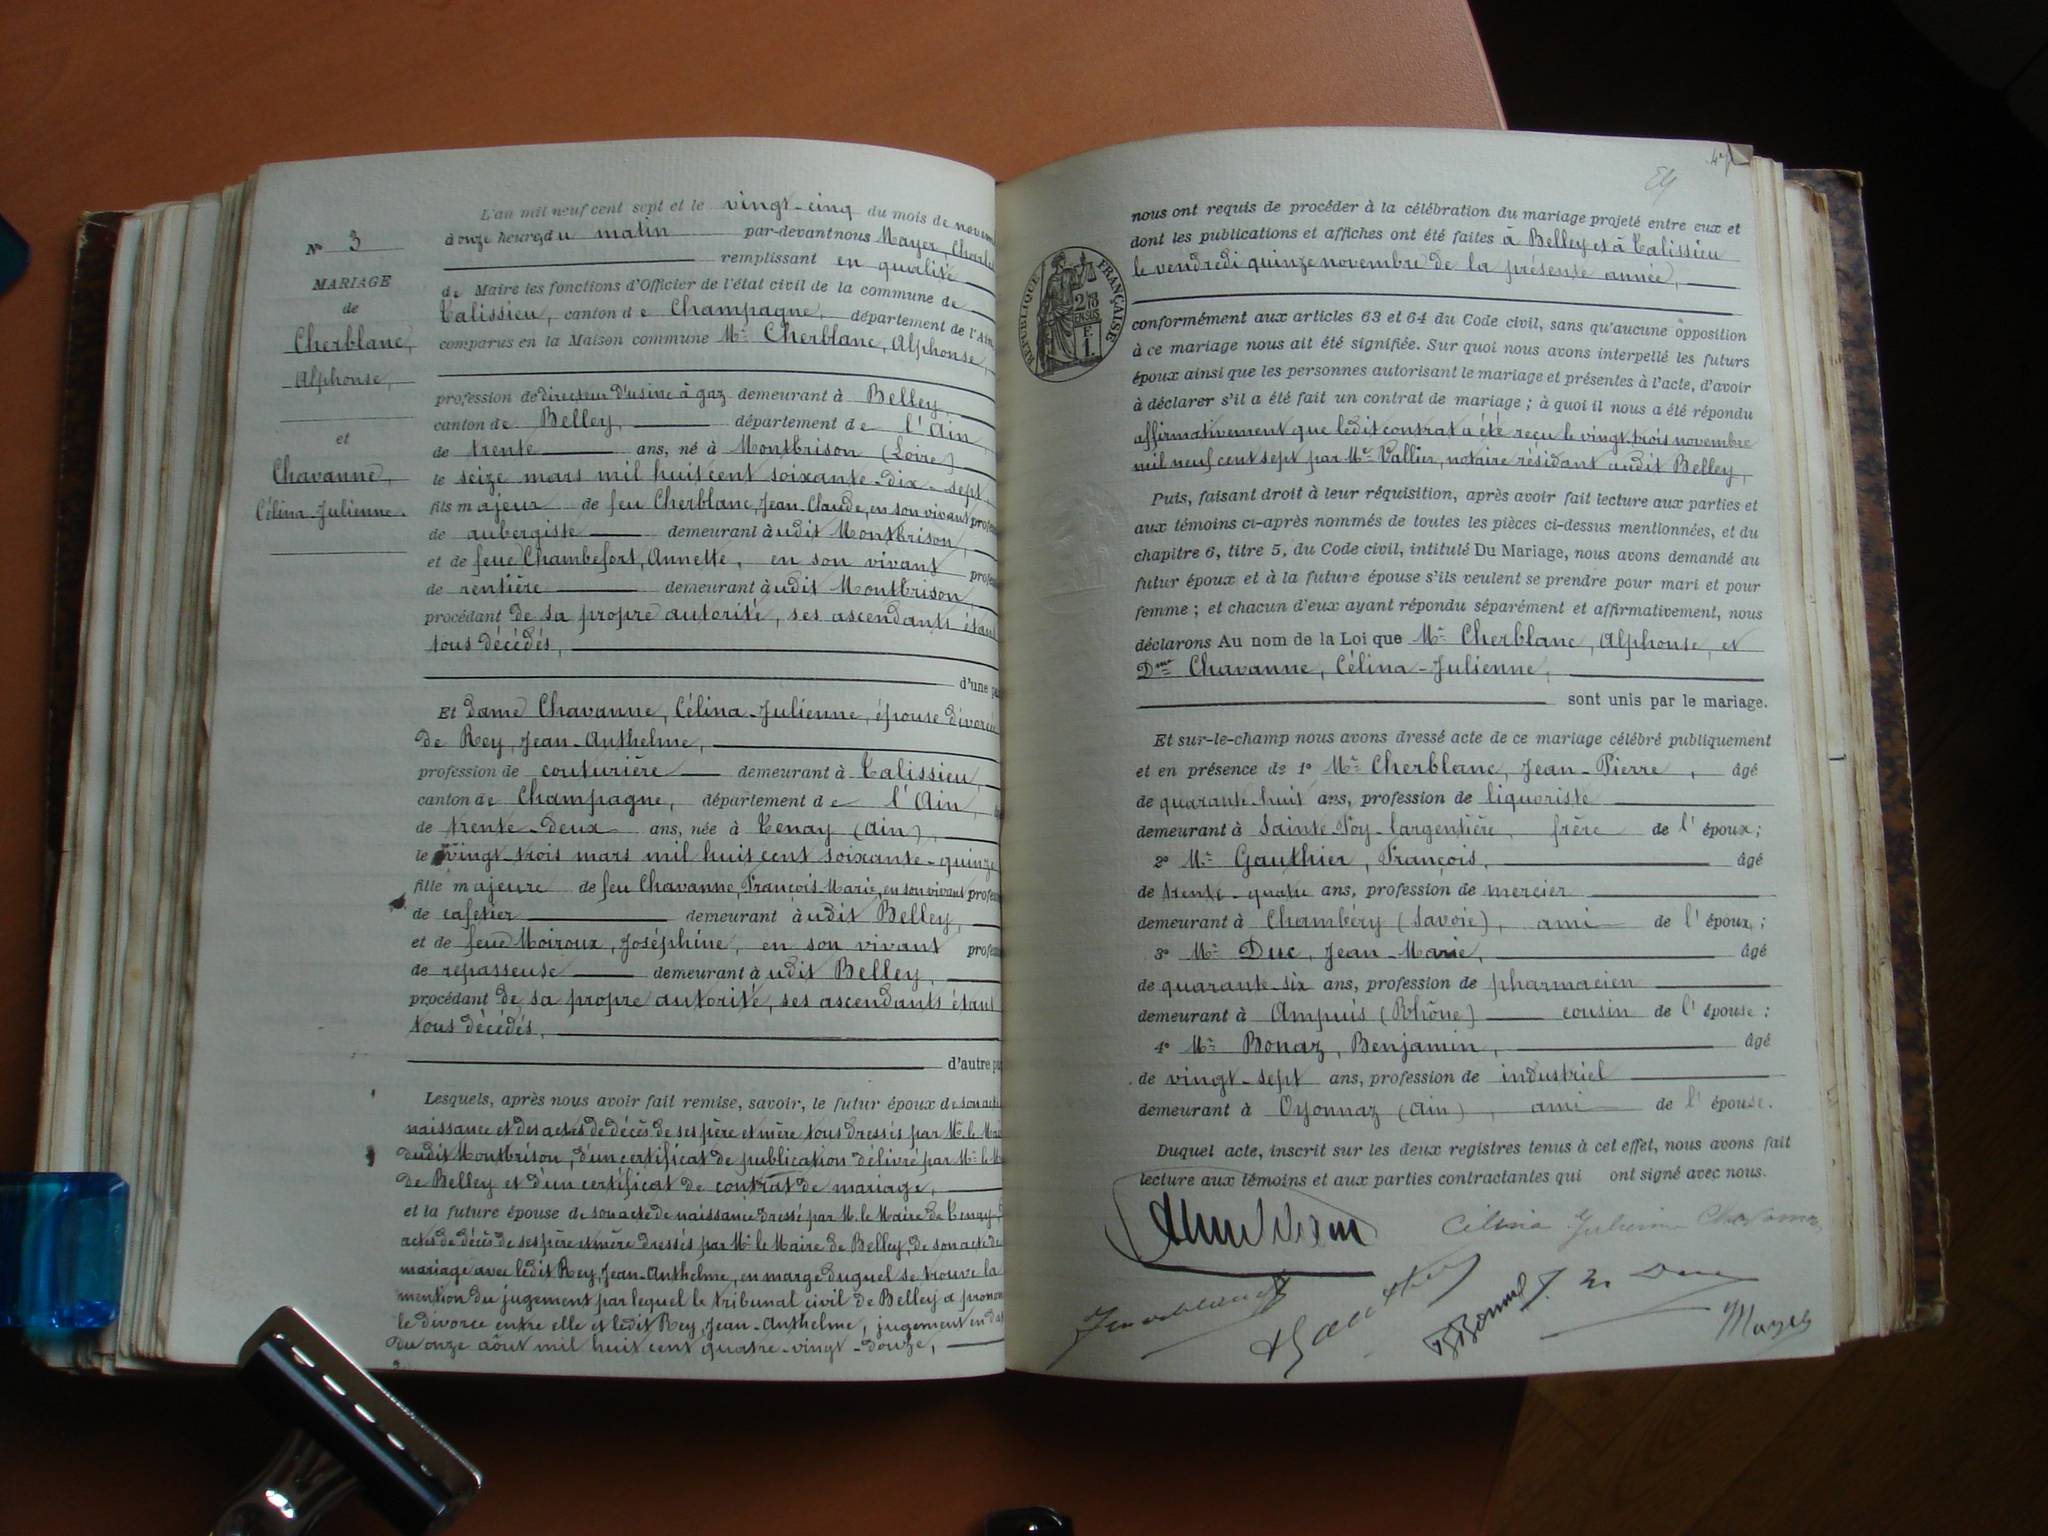 N° 3
MARIAGE
de
Cherblanc,
Alphonse,
et
Chavanne,
Célina-Julienne.
L'an mil neuf cent sept et le vingt-cinq du mois de novem
à onze heures du matin par-devant nous Mayer, Charles
remplissant en qualité
de Maire les fonctions d'Officier de l'état civil de la commune de
Talissieu, canton de Champagne, département de l'Ain,
comparus en la Maison commune Mr Cherblanc, Alphonse,
profession de directeur d'usine à gaz demeurant à Belley,
canton de Belley, département de l'Ain,
de trente ans, né à Montbrison (Loire)
le seize mars mil huit cent soixante-dix-sept
fils majeur de feu Cherblanc, Jean-Claude, en son vivant profes
de aubergiste demeurant à udit Montbrison,
et de feue Chambefort, Annette, en son vivant profes
de rentière demeurant à udit Montbrison,
procédant de sa propre autorité, ses ascendants étant
tous décédés,
d'une pa
Et dame Chavanne, Célina-Julienne, épouse divorcée
de Rey, Jean-Anthelme,
profession de couturière demeurant à Talissieu,
canton de Champagne, département de l'Ain,
de trente-deux ans, née à Tenay (Ain),
le vingt-trois mars mil huit cent soixante-quinze
fille majeure de feu Chavanne, François-Marie, en son vivant profes
de cafetier demeurant à udit Belley,
et de feue Moiroux, Joséphine, en son vivant profes
de repasseuse demeurant à udit Belley,
procédant de sa propre autorité, ses ascendants étant
tous décédés,
d'autre pa
Lesquels, après nous avoir fait remise, savoir, le futur époux de son acte
naissance et des actes de décès de ses père et mère tous dressés par Mr le Mai
dudit Montbrison, d'un certificat de publication délivré par Mr le M
de Belley et d'un certificat de contrat de mariage,
et la future épouse de son acte de naissance dressé par M. le Maire de Tenay,
actes de décès de ses père et mère dressés par Mr le Maire de Belley, de son acte de
mariage avec ledit Rey, Jean-Anthelme, en marge duquel se trouve la
mention du jugement par lequel le tribunal civil de Belley a pronon
le divorce entre elle et ledit Rey, Jean-Anthelme, jugement en dat
du onze août mil huit cent quatre-vingt-douze,
47
nous ont requis de procéder à la célébration du mariage projeté entre eux et
dont les publications et affiches ont été faites à Belley et à Talissieu
le vendredi quinze novembre de la présente année,
RÉPUBLIQUE FRANÇAISE
conformément aux articles 63 et 64 du Code civil, sans qu'aucune opposition
à ce mariage nous ait été signifiée. Sur quoi nous avons interpellé les futurs
époux ainsi que les personnes autorisant le mariage et présentes à l'acte, d'avoir
à déclarer s'il a été fait un contrat de mariage ; à quoi il nous a été répondu
affirmativement que ledit contrat a été reçu le vingt trois novembre
mil neuf cent sept par Me Vallier, notaire résidant audit Belley,
Puis, faisant droit à leur réquisition, après avoir fait lecture aux parties et
aux témoins ci-après nommés de toutes les pièces ci-dessus mentionnées, et du
chapitre 6, titre 5, du Code civil, intitulé Du Mariage, nous avons demandé au
futur époux et à la future épouse s'ils veulent se prendre pour mari et pour
femme ; et chacun d'eux ayant répondu séparément et affirmativement, nous
déclarons Au nom de la Loi que Mr Cherblanc, Alphonse, et
Dme Chavanne, Célina-Julienne,
sont unis par le mariage.
Et sur-le-champ nous avons dressé acte de ce mariage célébré publiquement
et en présence de 1° Mr Cherblanc, Jean-Pierre, âgé
de quarante-huit ans, profession de liquoriste
demeurant à Sainte-Foy-Largentière, frère de l'époux ;
2° Mr Gauthier, François, âgé
de trente-quatre ans, profession de mercier
demeurant à Chambéry (Savoie), ami de l'époux ;
3° Mr Duc, Jean-Marie, âgé
de quarante-six ans, profession de pharmacien
demeurant à Ampuis (Rhône) cousin de l'épouse ;
4° Mr Bonaz, Benjamin, âgé
de vingt-sept ans, profession de industriel
demeurant à Oyonnaz (Ain), ami de l'épouse.
Duquel acte, inscrit sur les deux registres tenus à cet effet, nous avons fait
lecture aux témoins et aux parties contractantes qui ont signé avec nous.
Célina Julienne Chavanne
J. M. Duc
Mayer